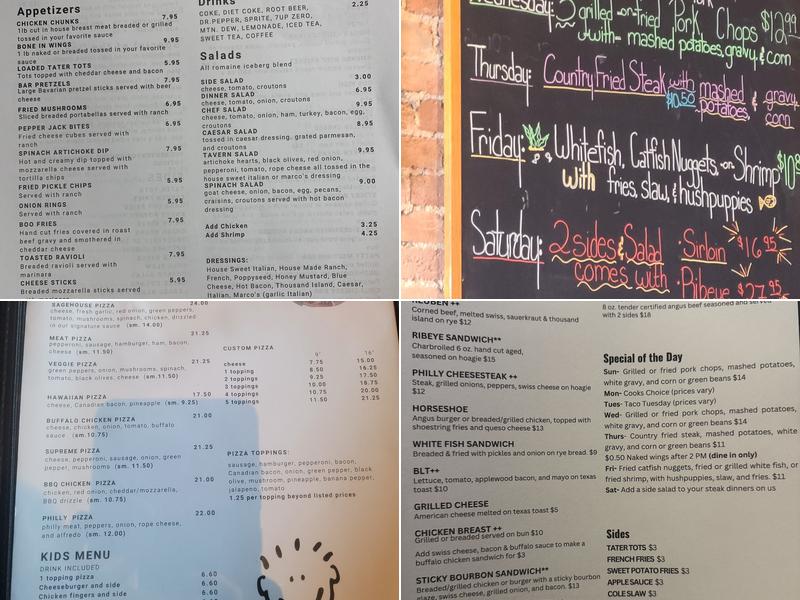 Appetizers
CHICKEN CHUNKS 7.95
1lb cut in house breast meat breaded or grilled
tossed in your favorite sauce
BONE IN WINGS 9.95
1 lb naked or breaded tossed in your favorite
sauce
LOADED TATER TOTS 5.95
Tots topped with cheddar cheese and bacon
BAR PRETZELS 7.95
Large Bavarian pretzel sticks served with beer
cheese
FRIED MUSHROOMS 6.95
Sliced breaded portabellas served with ranch
PEPPER JACK BITES 6.95
Fried cheese cubes served with
ranch
SPINACH ARTICHOKE DIP 7.95
Hot and creamy dip topped with
mozzarella cheese served with
tortilla chips
FRIED PICKLE CHIPS 5.95
Served with ranch
ONION RINGS 5.95
Served with ranch
BOO FRIES 7.95
Hand cut fries covered in roast
beef gravy and smothered in
cheddar cheese
TOASTED RAVIOLI 7.95
Breaded ravioli served with
marinara
CHEESE STICKS 5.95
Breaded mozzarella sticks served
Drinks 2.25
COKE, DIET COKE, ROOT BEER,
DR.PEPPER, SPRITE, 7UP ZERO,
MTN. DEW, LEMONADE, ICED TEA,
SWEET TEA, COFFEE
Salads
All romaine iceberg blend
SIDE SALAD 3.00
cheese, tomato, croutons
DINNER SALAD 6.95
cheese, tomato, onion, croutons
CHEF SALAD 9.95
cheese, tomato, onion, ham, turkey, bacon, egg,
croutons
CAESAR SALAD 8.95
tossed in caesar dressing, grated parmesan,
and croutons
TAVERN SALAD 9.95
artichoke hearts, black olives, red onion,
pepperoni, tomato, rope cheese all tossed in the
house sweet italian or marco's dressing
SPINACH SALAD 9.00
goat cheese, onion, bacon, egg, pecans,
craisins, croutons served with hot bacon
dressing
Add Chicken 3.25
Add Shrimp 4.25
DRESSINGS:
House Sweet Italian, House Made Ranch,
French, Poppyseed, Honey Mustard, Blue
Cheese, Hot Bacon, Thousand Island, Caesar,
Italian, Marco's (garlic Italian)
Wednesday: 3 grilled -or- fried Pork Chops $12.99
with mashed potatoes, gravy, & corn
Thursday: Country Fried Steak with mashed & gravy
$10.50 potatoes, corn
Friday: Whitefish, Catfish Nuggets, -or- Shrimp
with fries, slaw, & hushpuppies
Saturday: 2 sides & Salad · Sirloin $16.95
comes with · Ribeye $27.95
SAGEHOUSE PIZZA 24.00
cheese, fresh garlic, red onion, green peppers,
tomato, mushrooms, spinach, chicken, drizzled
in our signature sauce (sm. 14.00)
MEAT PIZZA 21.25
pepperoni, sausage, hamburger, ham, bacon,
cheese (sm. 11.50)
VEGGIE PIZZA 21.25
green peppers, onion, mushrooms, spinach,
tomato, black olives, cheese (sm.11.50)
HAWAIIAN PIZZA 17.50
cheese, Canadian bacon, pineapple (sm. 9.25)
BUFFALO CHICKEN PIZZA 21.00
cheese, chicken, onion, tomato, buffalo
sauce (sm.10.75)
SUPREME PIZZA 21.25
cheese, pepperoni, sausage, onion, green
pepper, mushrooms (sm. 11.50)
BBQ CHICKEN PIZZA 21.00
chicken, red onion, cheddar/mozzarella,
BBQ drizzle (sm. 10.75)
PHILLY PIZZA 22.00
philly meat, peppers, onion, rope cheese,
and alfredo (sm. 12.00)
KIDS MENU
DRINK INCLUDED
1 topping pizza 6.60
Cheeseburger and side 6.60
Chicken fingers and side 6.60
CUSTOM PIZZA
9" 16"
cheese 7.75 15.00
1 topping 8.50 16.25
2 toppings 9.25 17.50
3 toppings 10.00 18.75
4 toppings 10.75 20.00
5 toppings 11.50 21.25
PIZZA TOPPINGS:
sausage, hamburger, pepperoni, bacon,
Canadian bacon, onion, green pepper, black
olive, mushroom, pineapple, banana pepper,
jalapeno, tomato
1.25 per topping beyond listed prices
REUBEN ++
Corned beef, melted swiss, sauerkraut & thousand
island on rye $12
RIBEYE SANDWICH**
Charbroiled 6 oz. hand cut aged,
seasoned on hoagie $15
PHILLY CHEESESTEAK ++
Steak, grilled onions, peppers, swiss cheese on hoagie
$12
HORSESHOE
Angus burger or breaded/grilled chicken, topped with
shoestring fries and queso cheese $13
WHITE FISH SANDWICH
Breaded & fried with pickles and onion on rye bread. $9
BLT++
Lettuce, tomato, applewood bacon, and mayo on texas
toast $10
GRILLED CHEESE
American cheese melted on texas toast $5
CHICKEN BREAST ++
Grilled or breaded served on bun $10
Add swiss cheese, bacon & buffalo sauce to make a
buffalo chicken sandwich for $3
STICKY BOURBON SANDWICH**
Breaded/grilled chicken or burger with a sticky bourbon
glaze, swiss cheese, grilled onion, and bacon. $13
8 oz. tender certified angus beef seasoned and served
with 2 sides $18
Special of the Day
Sun- Grilled or fried pork chops, mashed potatoes,
white gravy, and corn or green beans $14
Mon- Cooks Choice (prices vary)
Tues- Taco Tuesday (prices vary)
Wed- Grilled or fried pork chops, mashed potatoes,
white gravy, and corn or green beans $14
Thurs- Country fried steak, mashed potatoes, white
gravy, and corn or green beans $11
$0.50 Naked wings after 2 PM (dine in only)
Fri- Fried catfish nuggets, fried or grilled white fish, or
fried shrimp, with hushpuppies, slaw, and fries. $11
Sat- Add a side salad to your steak dinners on us
Sides
TATER TOTS $3
FRENCH FRIES $3
SWEET POTATO FRIES $3
APPLE SAUCE $3
COLE SLAW $3